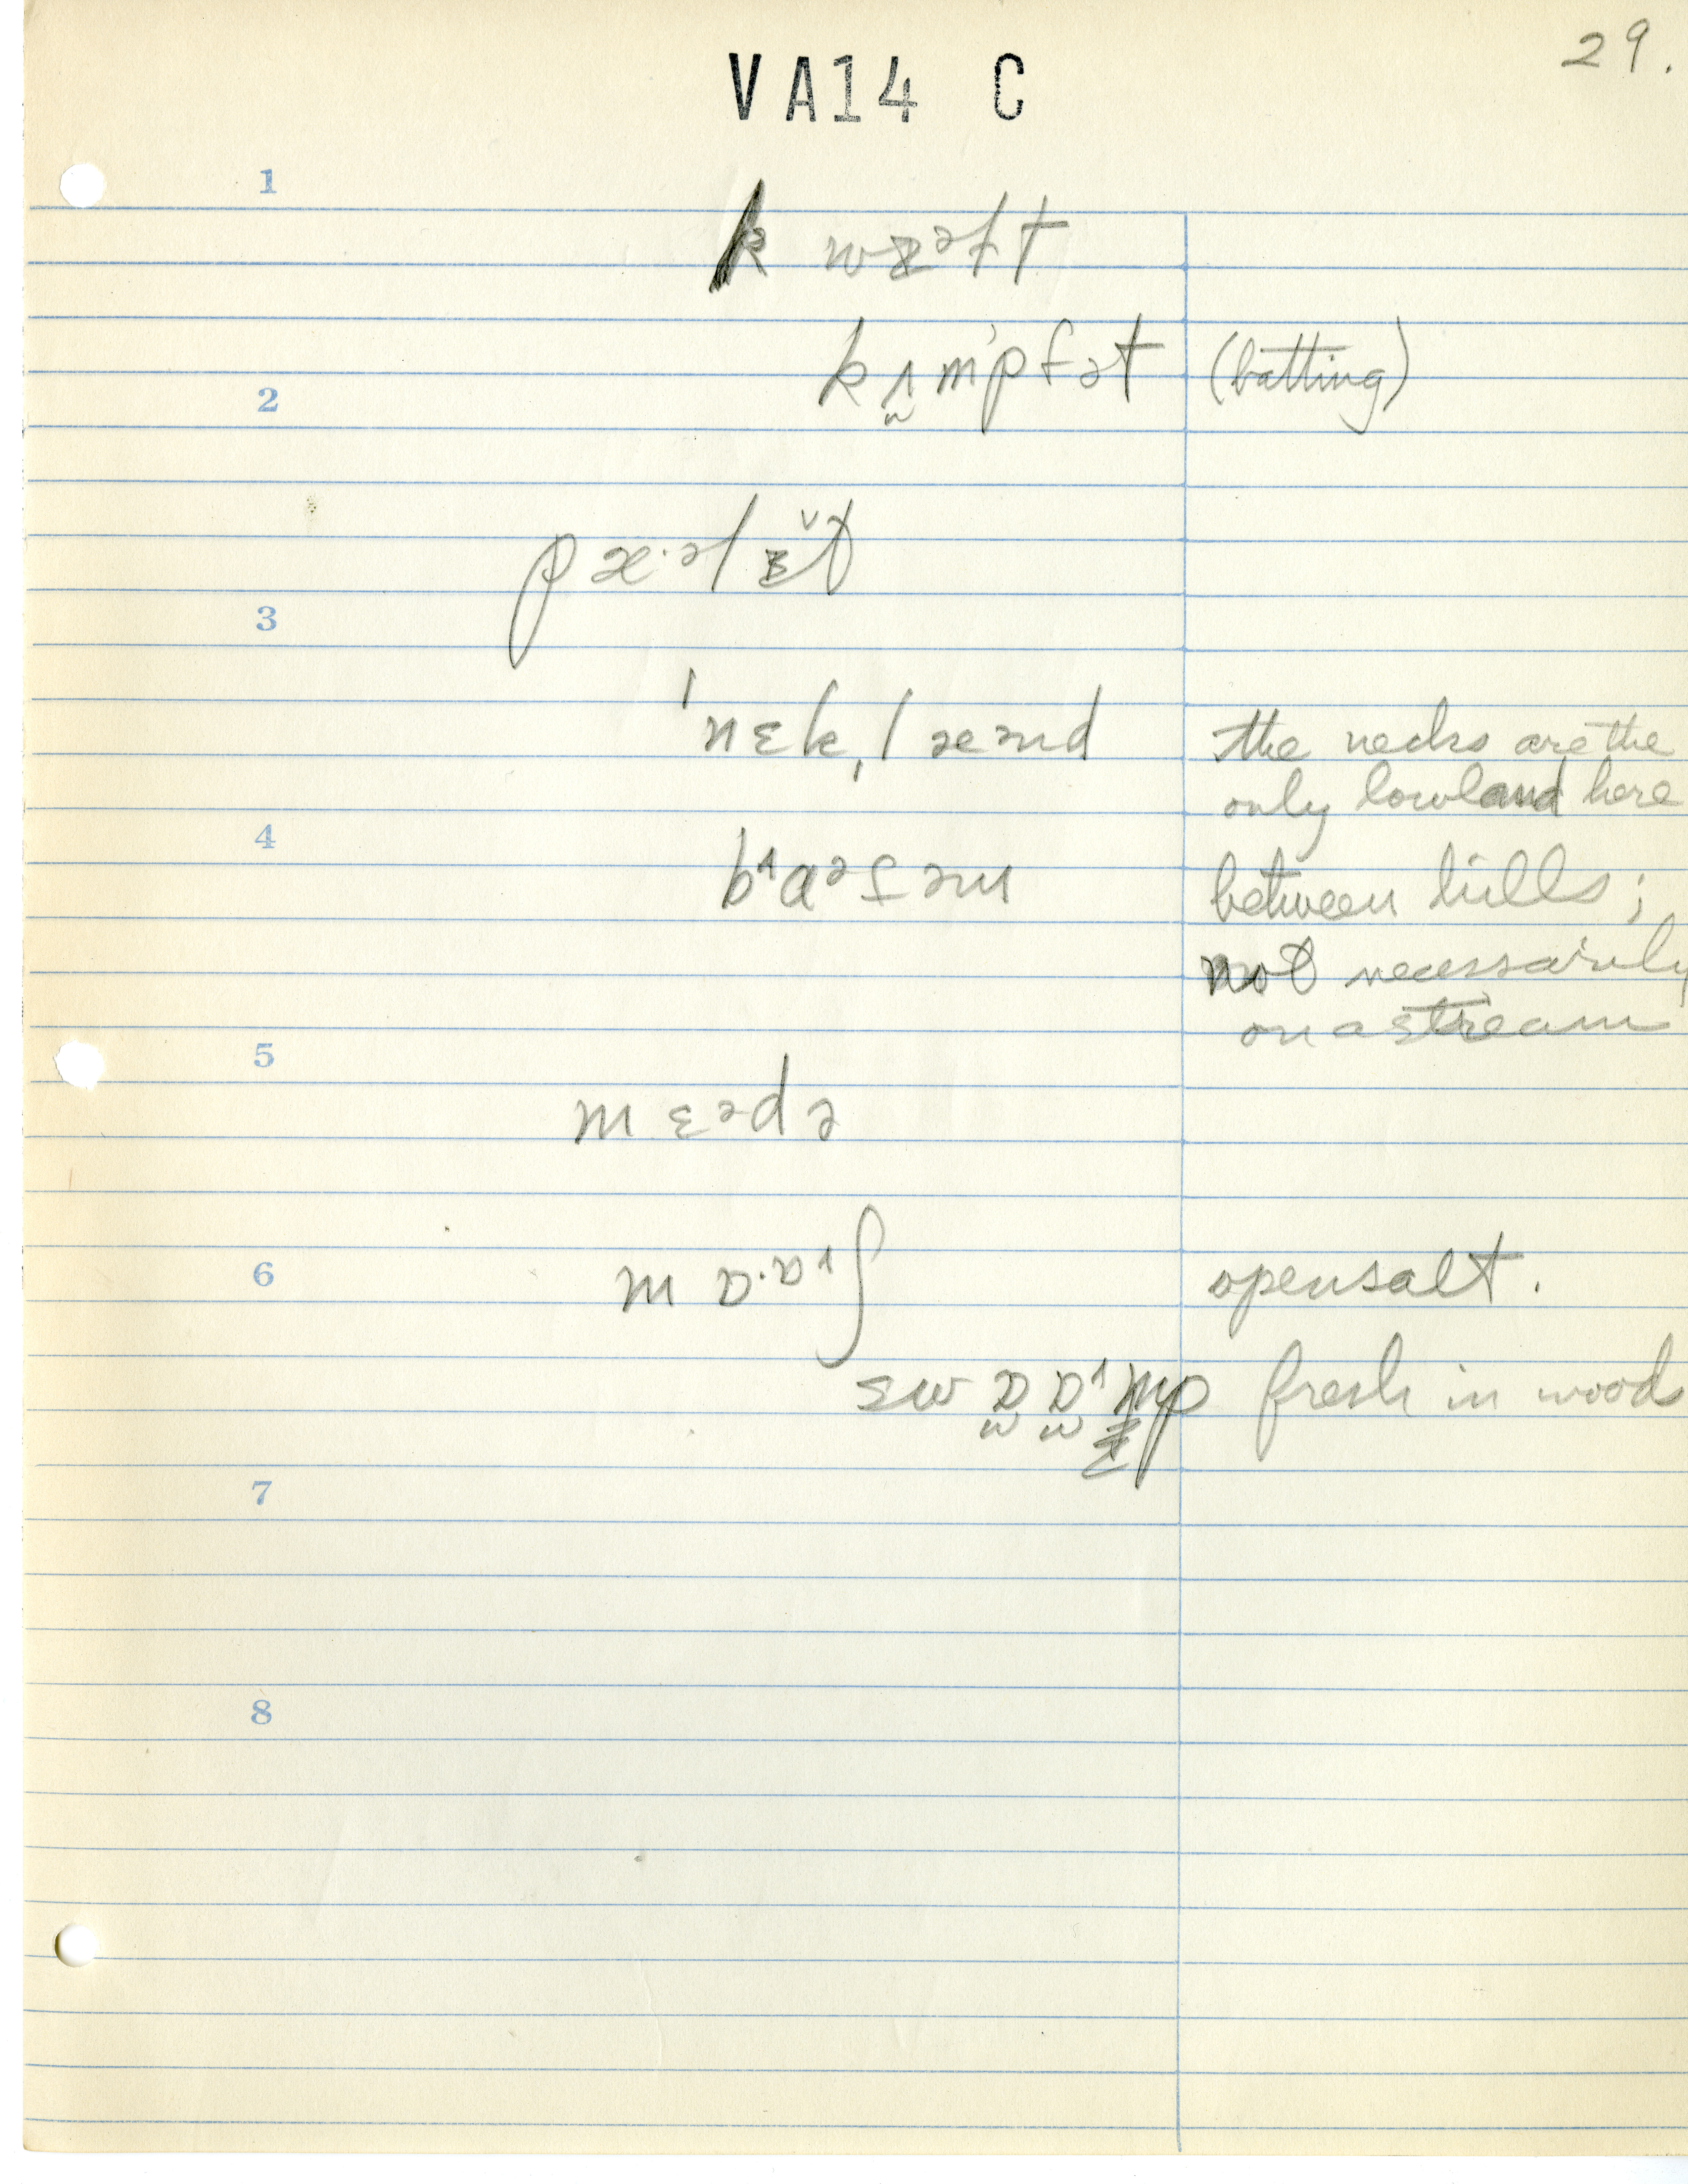 29.
VA14 C
1
k wᵻəɫt
2
kʌ̫m'pfət (batting)
pæ·əlᵻ̌t
3
ˈnɛkˌlæənd the necks are the
only lowland here
4
bᶦɑəɾəm between hills;
not necessarily
on a stream
5
mɛədə
6
mɒ·ɒᶦʃ open salt.
swɒ̫ɒ̫ᶦmp fresh in woods
7
8